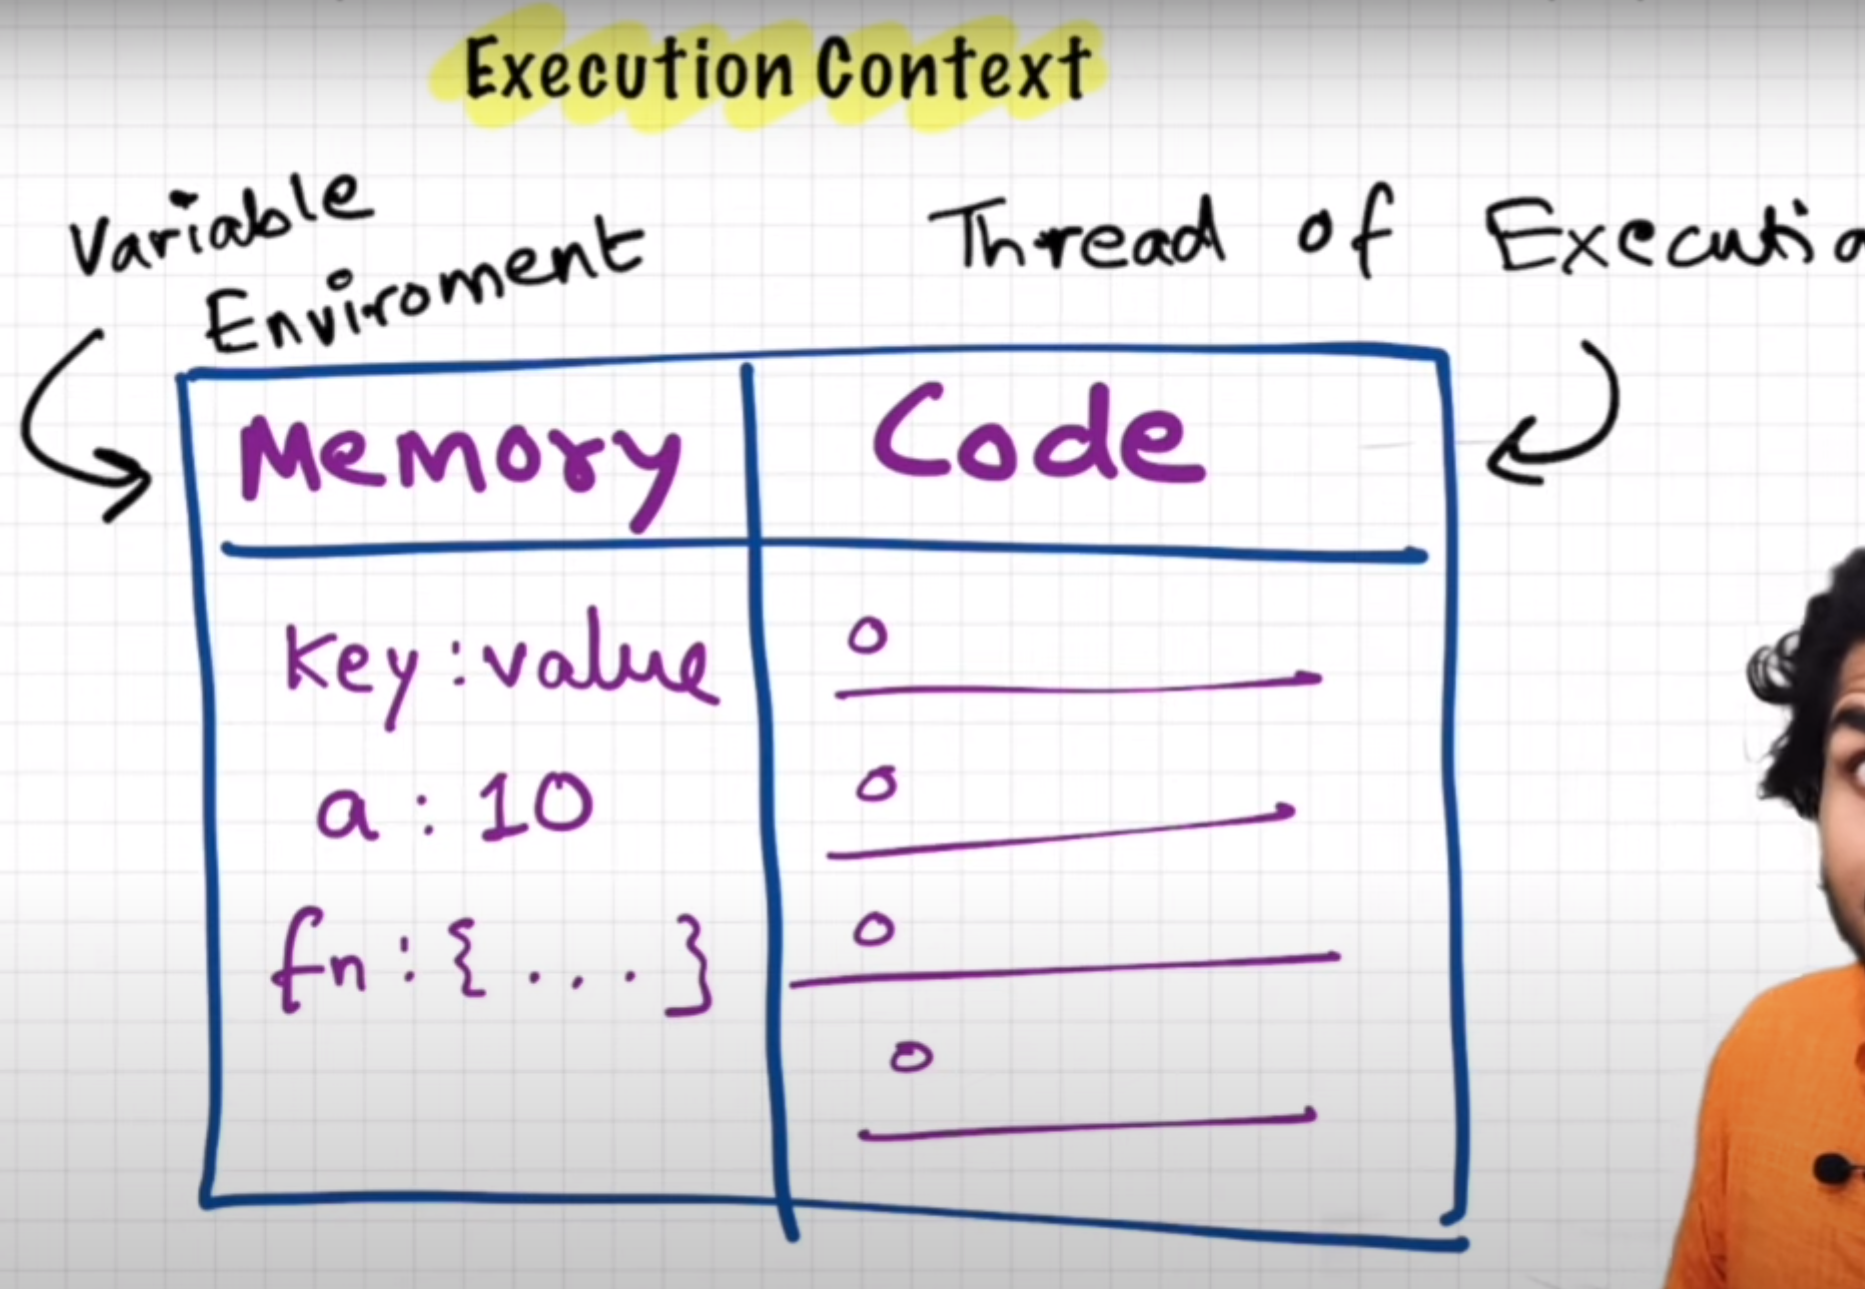 Execution Context
Variable
Enviroment
Thread of Executio
Memory
Code
key : value
a : 10
fn : { . . . }